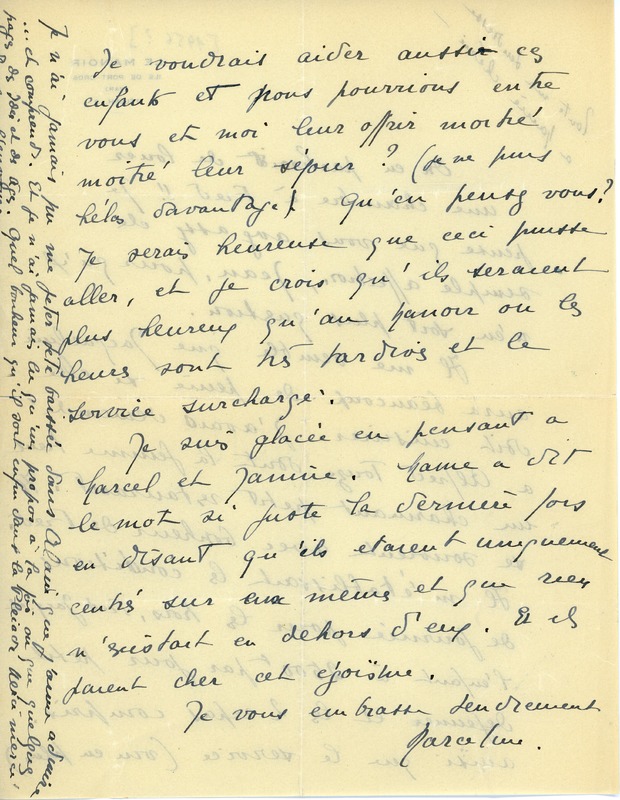 Je voudrais aider aussi ces
enfants et nous pourrions entre
vous et moi leur offrir moitié
moitié leur séjour ? (je ne puis
hélas davantage) Qu'en pensez vous?
Je serais heureuse que ceci puisse
aller, et je crois qu'ils seraient
plus heureux qu'au manoir ou les
heures sont très tardives et le
service surchargé.
Je suis glacée en pensant a
Marcel et Janine. Mame a dit
le mot si juste la dernière fois
en disant qu'ils etaient uniquement
centrés sur eux mêmes et que rien
n'existait en dehors d'eux. Et ils
paient cher cet égoïsme.
Je vous embrasse tendrement
Marceline.
Je n'ai jamais pu me jeter tête baissée dans Alain que j'aime admire
... et comprend. Et je n'ai jamais lu qu'un propos à la fois ou que quelques
pages de Idées et des Ages. Quel bonheur qu'ils sont enfin dans la Pléiade
MANOIR